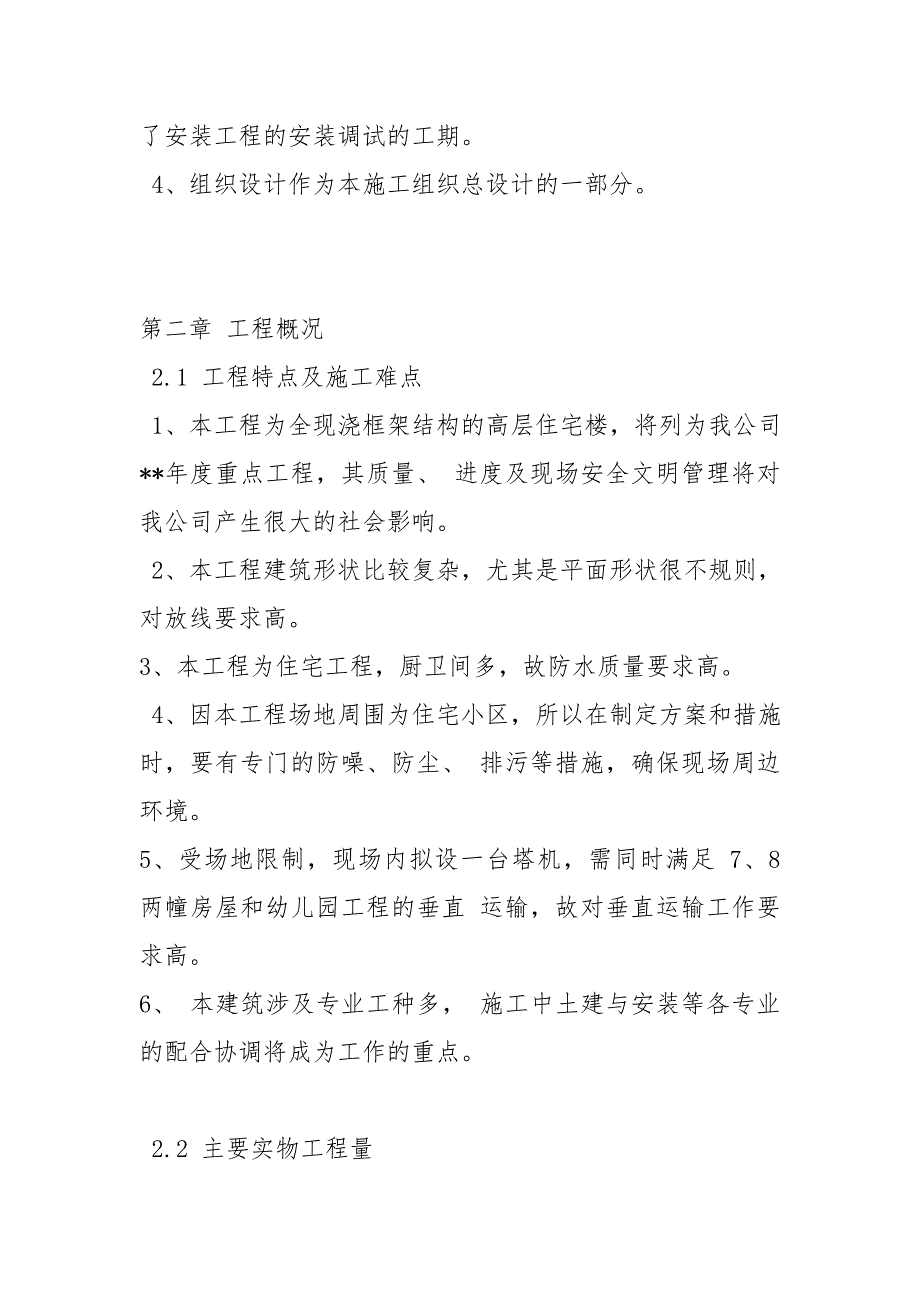 了安装工程的安装调试的工期。
4、组织设计作为本施工组织总设计的一部分。
第二章 工程概况
2.1 工程特点及施工难点
1、本工程为全现浇框架结构的高层住宅楼，将列为我公司
**年度重点工程，其质量、 进度及现场安全文明管理将对
我公司产生很大的社会影响。
2、本工程建筑形状比较复杂，尤其是平面形状很不规则，
对放线要求高。
3、本工程为住宅工程，厨卫间多，故防水质量要求高。
4、因本工程场地周围为住宅小区，所以在制定方案和措施
时，要有专门的防噪、防尘、 排污等措施，确保现场周边
环境。
5、受场地限制，现场内拟设一台塔机，需同时满足 7、8
两幢房屋和幼儿园工程的垂直 运输，故对垂直运输工作要
求高。
6、 本建筑涉及专业工种多， 施工中土建与安装等各专业
的配合协调将成为工作的重点。
2.2 主要实物工程量